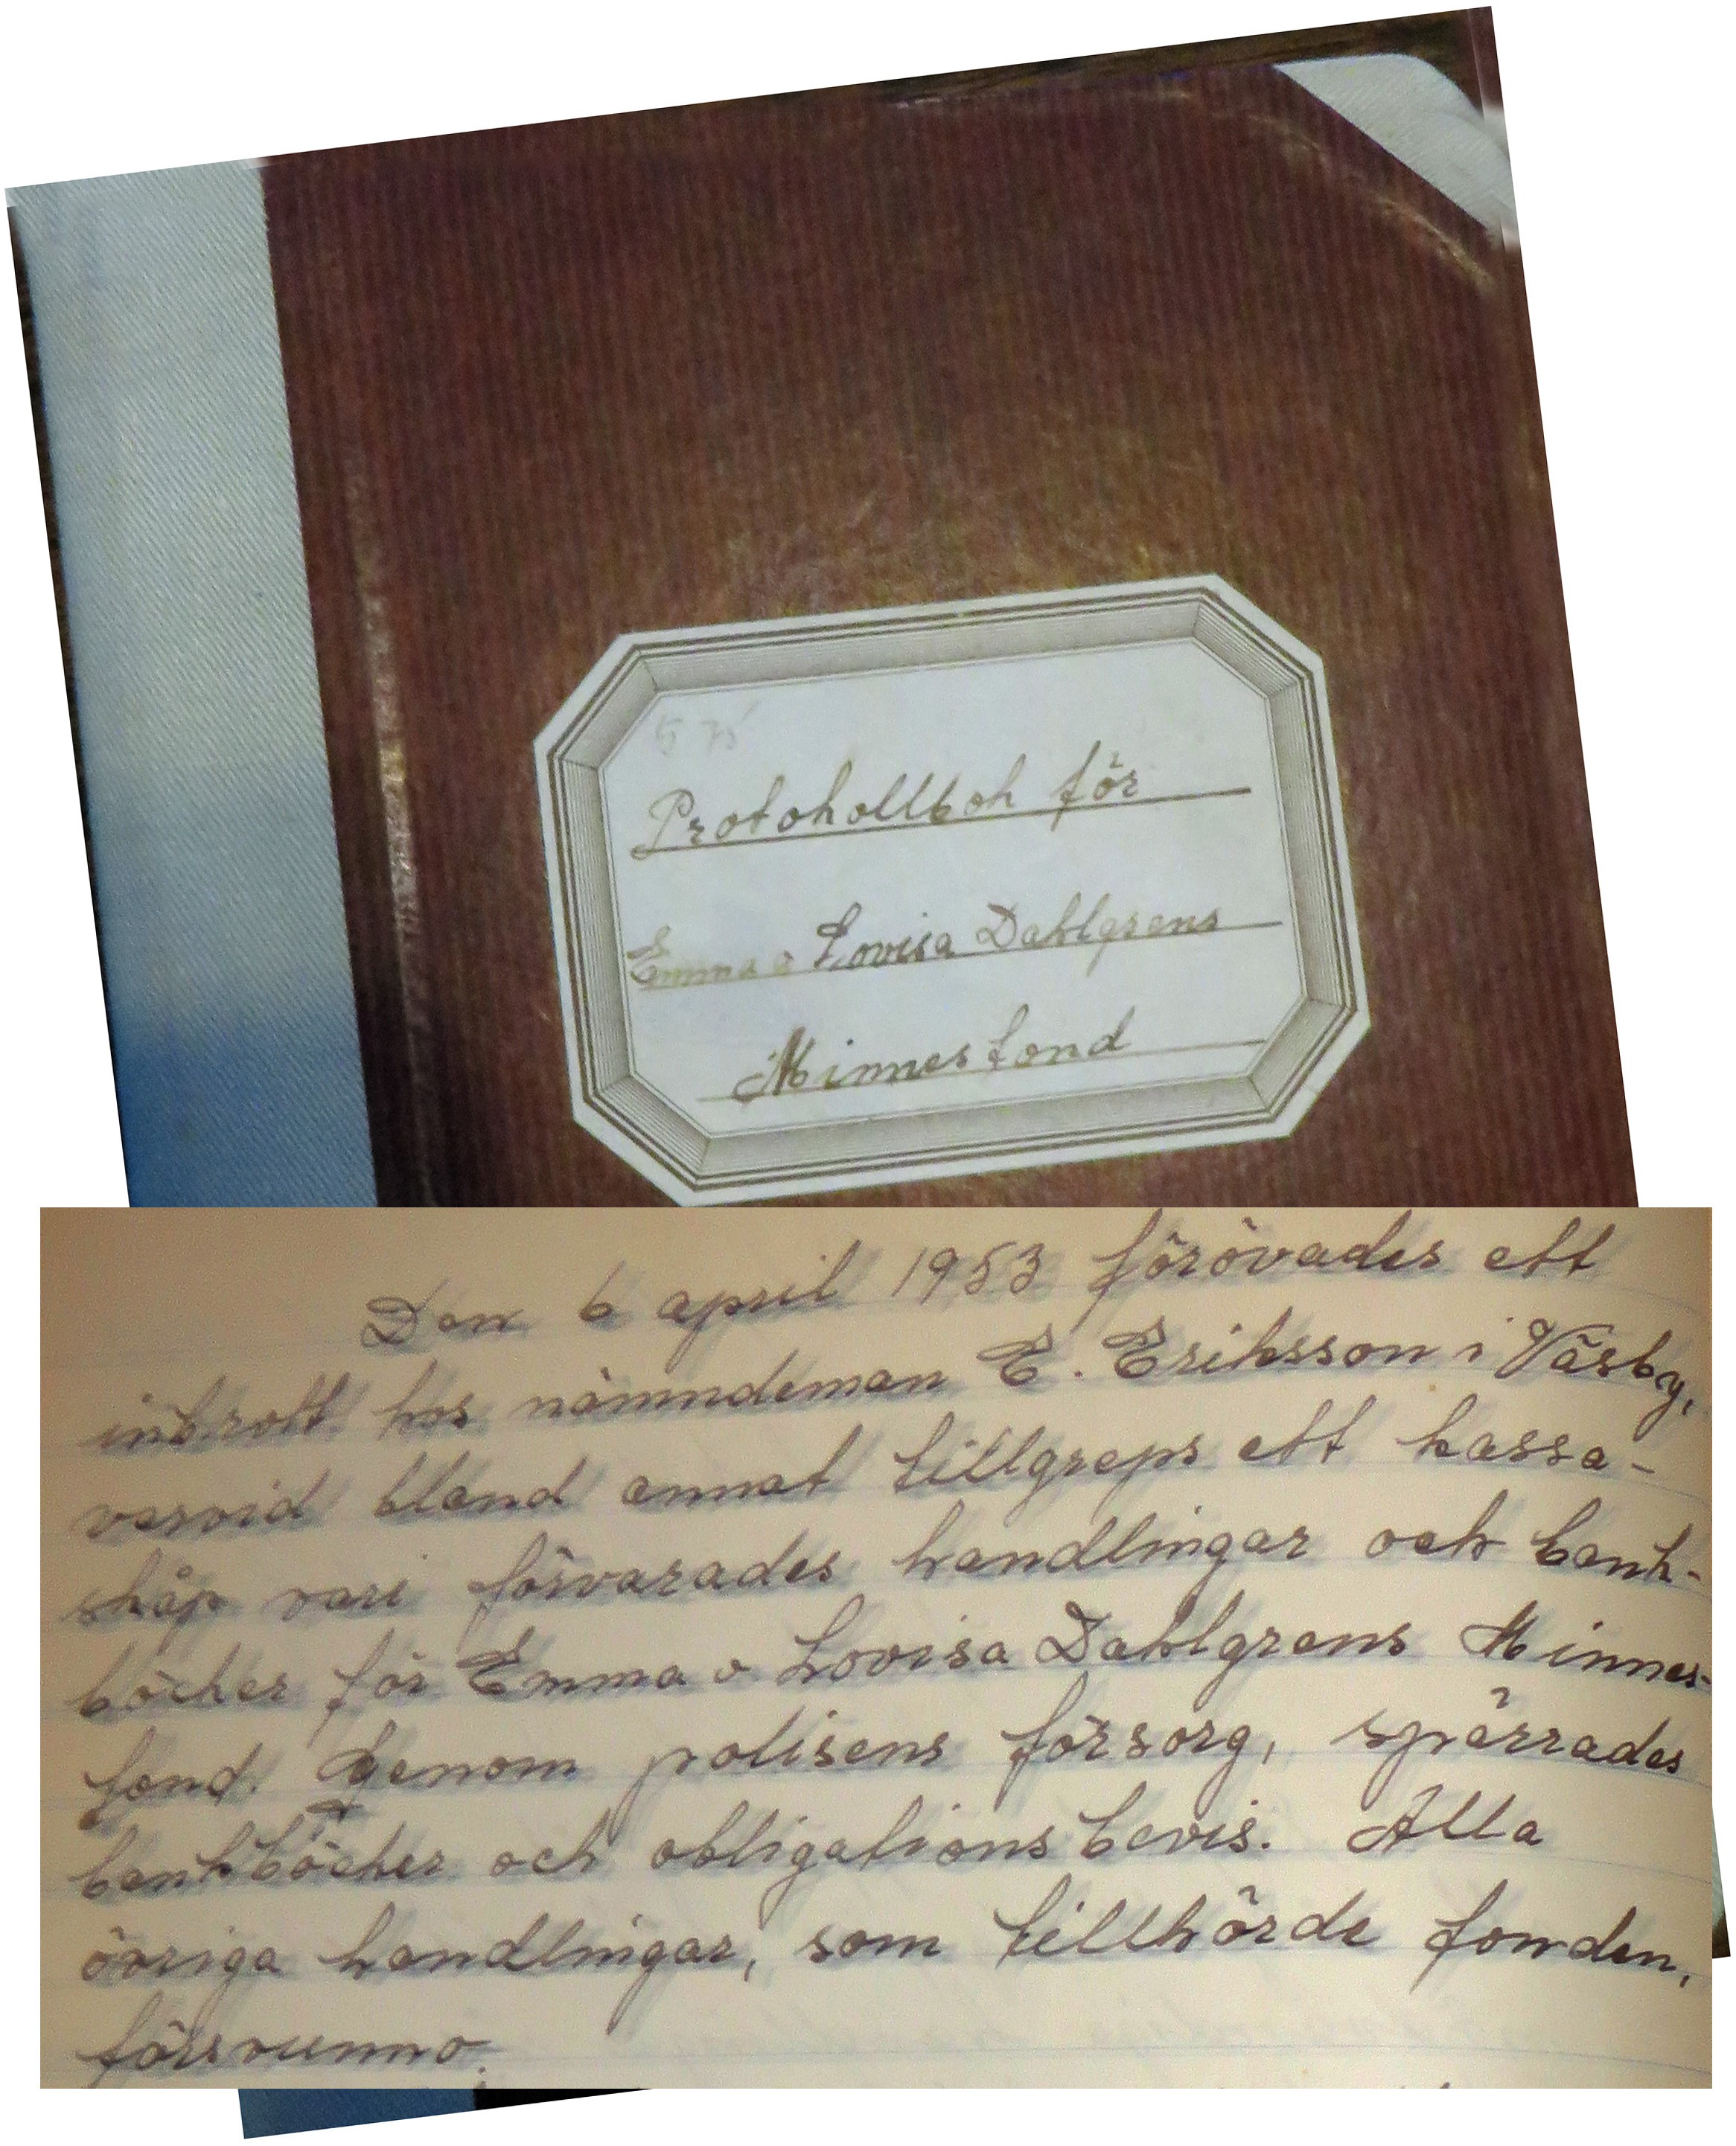 Protokollbok för
Emma o Lovisa Dahlgrens
Minnesfond
Den 6 april 1953 förövades ett
inbrott hos nämndeman E. Eriksson i Väsby,
varvid bland annat tillgreps ett kassa-
skåp vari förvarades handlingar och bank-
böcker för Emma o Lovisa Dahlgrens Minnes-
fond. Genom polisens försorg, spärrades
bankböcker och obligationsbevis. Alla
övriga handlingar, som tillhörde fonden,
försvunno.